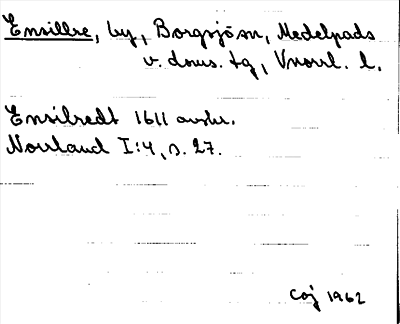 Ensillre, by, Borgsjö sn, Medelpads
v. doms. tg, Vnorrl. l.
Ensilredt 1611 avskr.
Norrland I:4, s. 27.
CGJ 1962